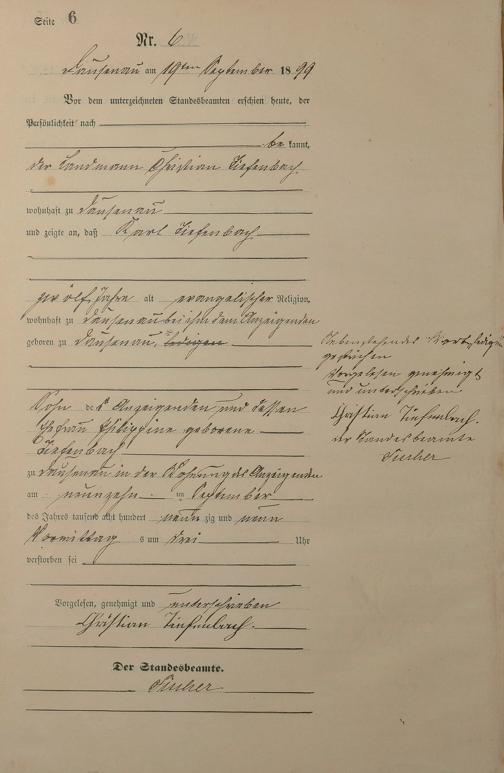 Seite 6
Nr. 6
Dausenau am 19ten September 1899
Vor dem unterzeichneten Standesbeamten erschien heute, der
Persönlichkeit nach
be kannt,
der Landmann Christian Tiefenbach
wohnhaft zu Dausenau
und zeigte an, daß Karl Tiefenbach
zwölf Jahre alt evangelischer Religion,
wohnhaft zu Dausenau bei ihm dem Anzeigenden
geboren zu Dausenau, ledigen
Sohn des Anzeigenden und dessen
Ehefrau Philippine geborene
Tiefenbach
zu Dausenau in der Wohnung des Anzeigenden
am neunzehn ten September
des Jahres tausend acht hundert neun zig und neun
Vormittag s um drei Uhr
verstorben sei
Vorgelesen, genehmigt und unterschrieben
Christian Tiefenbach.
Der Standesbeamte.
Nebenstehendes Wort ledigen
gestrichen
Vorgelesen genehmigt
und unterschrieben
Christian Tiefenbach.
der Standesbeamte